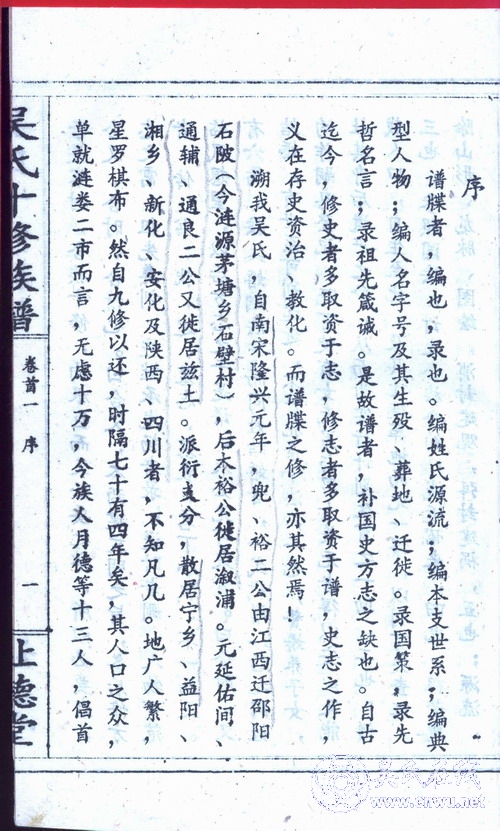 序
谱牒者，编也，录也。编姓氏源流；编本支世系；编典
型人物；编人名字号及其生殁、葬地、迁徙。录国策，录先
哲名言；录祖先箴诫。是故谱者，补国史方志之缺也。自古
迄今，修史者多取资于志，修志者多取资于谱，史志之作，
义在存史资治、教化。而谱牒之修，亦其然焉！
溯我吴氏，自南宋隆兴元年，兜、裕二公由江西迁邵阳
石陂（今涟源茅塘乡石壁村），后木裕公徙居溆浦。元延佑间、
通辅、通良二公又徙居兹土。派衍支分，散居宁乡、益阳、
湘乡、新化、安化及陕西、四川者，不知凡几。地广人繁，
星罗棋布。然自九修以还，时隔七十有四年矣，其人口之众，
单就涟娄二市而言，无虑十万，今族人月德等十三人，倡首
吴氏十修族谱
卷首一 序
一
止德堂
www.cnwu.net